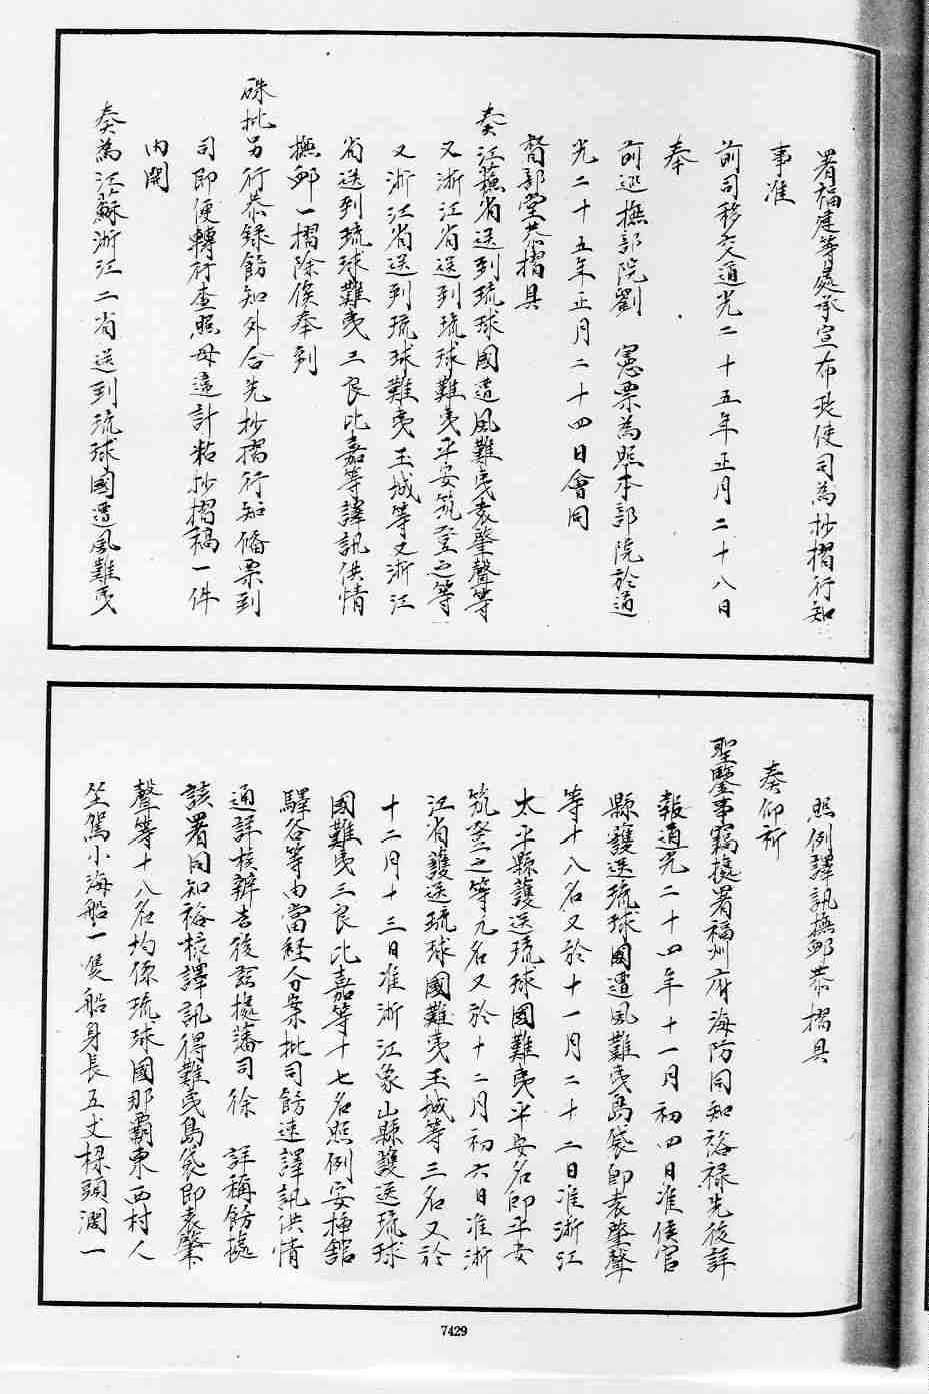 署福建等處承宣布政使司為抄摺行知
事准
前司移交道光二十五年正月二十八日
奉
前巡撫部院劉　憲票為照本部院於道
光二十五年正月二十四日會同
督部堂恭摺具
奏江蘇省送到琉球國遭風難夷袁肇聲等
又浙江省送到琉球難夷平安筑登之等
又浙江省送到琉球難夷玉城等又浙江
省送到琉球難夷三良比嘉等譯訊供情
撫卹一摺除俟奉到
硃批另行恭錄飭知外合先抄摺行知備票到
司即便轉行查照毋違計粘抄摺稿一件
內開
奏為江蘇浙江二省送到琉球國遭風難夷
照例譯訊撫卹恭摺具
奏仰祈
聖鑒事竊據署福州府海防同知裕祿先後詳
報道光二十四年十一月初四日准侯官
縣護送琉球國遭風難夷島袋即袁肇聲
等十八名又於十一月二十二日准浙江
太平縣護送琉球國難夷平安名即平安
筑登之等九名又於十二月初六日准浙
江省護送琉球國難夷玉城等三名又於
十二月十三日准浙江象山縣護送琉球
國難夷三良比嘉等十七名照例安插館
驛各等由當経分案批司飭速譯訊供情
通詳核辦去後茲據藩司徐　詳稱飭據
該署同知裕祿譯訊得難夷島袋即袁肇
聲等十八名均係琉球國那霸東西村人
坐駕小海船一隻船身長五丈樑頭濶一
7429